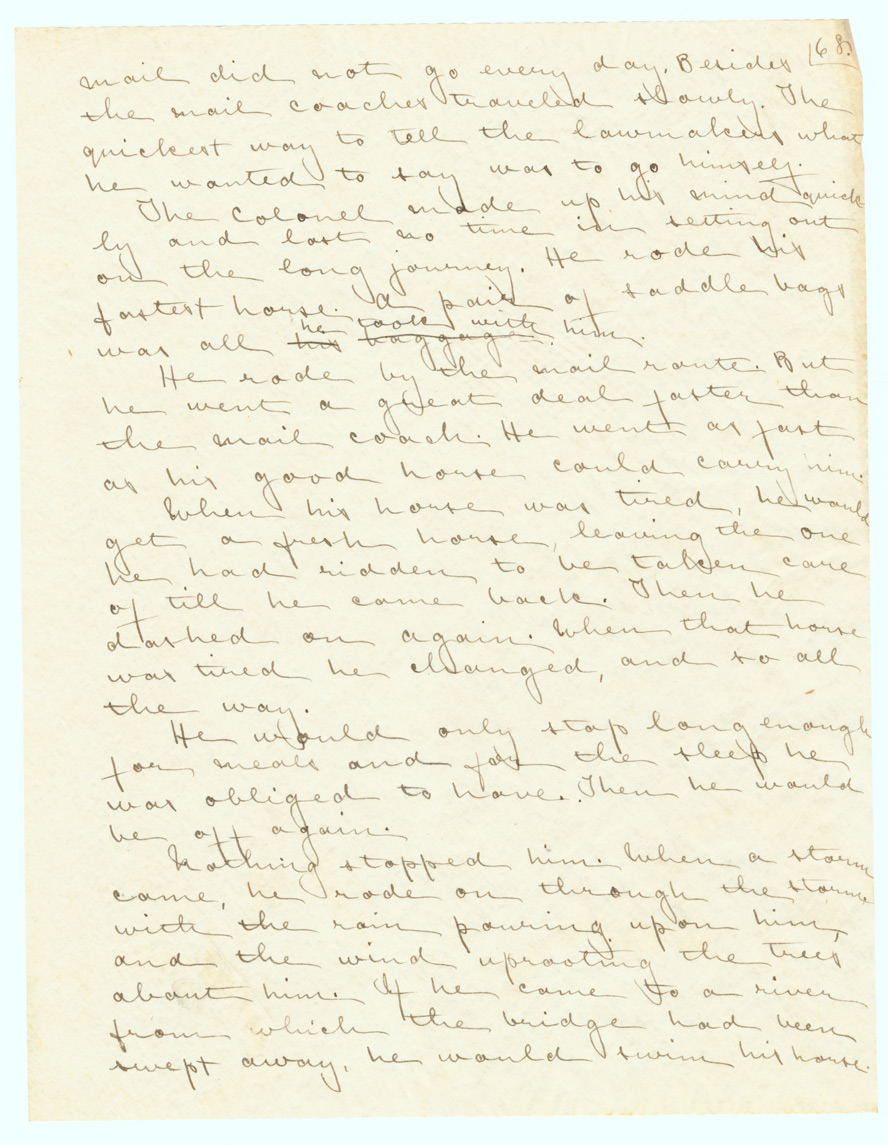 168.
mail did not go every day. Besides
the mail coaches traveled slowly. The
quickest way to tell the lawmakers what
he wanted to say was to go himself.
The Colonel made up his mind quick
ly and lost no time in setting out
on the long journey. He rode his
fastest horse. A pair of saddle bags
he took with
was all his baggage. him.
He rode by the mail route. But
he went a great deal faster than
the mail coach. He went as fast
as his good horse could carry him.
When his horse was tired, he would
get a fresh horse, leaving the one
he had ridden to be taken care
of till he came back. Then he
dashed on again. When that horse
was tired he changed, and so all
the way.
He would only stop long enough
for meals and for the sleep he
was obliged to have. Then he would
be off again.
Nothing stopped him. When a storm
came, he rode on through the storm
with the rain pouring upon him,
and the wind uprooting the trees
about him. If he came to a river
from which the bridge had been
swept away, he would swim his horse.